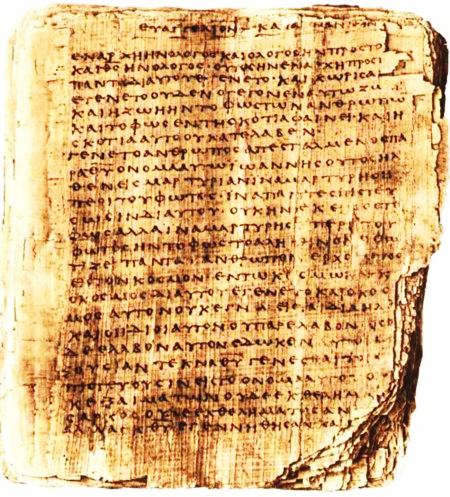 ΕΥΑΓΓΕΛΙΟΝ ΚΑΤΑ
ΕΝ ΑΡΧΗ ΗΝ Ο ΛΟΓΟϹ ΚΑΙ Ο ΛΟΓΟϹ ΗΝ ΠΡΟϹ ΤΟ
ΚΑΙ ΘϹ ΗΝ Ο ΛΟΓΟϹ ΟΥΤΟϹ ΗΝ ΕΝ ΑΡΧΗ ΠΡΟϹ
ΠΑΝΤΑ ΔΙ ΑΥΤΟΥ ΕΓΕΝΕΤΟ ΚΑΙ ΧΩΡΙϹ Α
ΕΓΕΝΕΤΟ ΟΥΔΕΝ Ο ΓΕΓΟΝΕΝ ΕΝ ΑΥΤΩ Ζ
ΚΑΙ Η ΖΩΗ ΗΝ ΤΟ ΦΩϹ ΤΩΝ ΑΝΘΡΩΠΩ
ΚΑΙ ΤΟ ΦΩϹ ΕΝ ΤΗ ϹΚΟΤΙΑ ΦΑΙΝΕΙ ΚΑΙ Η
ϹΚΟΤΙΑ ΑΥΤΟ ΟΥ ΚΑΤΕΛΑΒΕΝ
ΕΓΕΝΕΤΟ ΑΝΘΡΩΠΟϹ ΑΠΕϹΤΑΛΜΕΝΟϹ ΠΑ
ΡΑ ΘΥ ΟΝΟΜΑ ΑΥΤΩ ΙΩΑΝΝΗϹ ΟΥΤΟϹ ΗΛ
ΘΕΝ ΕΙϹ ΜΑΡΤΥΡΙΑΝ ΙΝΑ ΜΑΡΤΥΡΗϹΗ
ΠΕΡΙ ΤΟΥ ΦΩΤΟϹ ΙΝΑ ΠΑΝΤΕϹ ΠΙϹΤΕΥ
ϹΩϹΙΝ ΔΙ ΑΥΤΟΥ ΟΥΚ ΗΝ ΕΚΕΙΝΟϹ ΤΟ
ΦΩϹ ΑΛΛ ΙΝΑ ΜΑΡΤΥΡΗϹΗ ΠΕΡΙ ΤΟΥ
ΦΩΤΟϹ ΗΝ ΤΟ ΦΩϹ ΤΟ ΑΛΗΘΙΝΟΝ Ο ΦΩ
ΤΙΖΕΙ ΠΑΝΤΑ ΑΝΘΡΩΠΟΝ ΕΡΧΟΜΕΝΟ
ΕΙϹ ΤΟΝ ΚΟϹΜΟΝ ΕΝ ΤΩ ΚΟϹΜΩ ΗΝ
Ο ΚΟϹΜΟϹ ΔΙ ΑΥΤΟΥ ΕΓΕΝΕΤΟ ΚΑΙ Ο ΚΟϹ
ΜΟϹ ΑΥΤΟΝ ΟΥΚ ΕΓΝΩ ΕΙϹ ΤΑ ΙΔΙΑ ΗΛ
ΚΑΙ ΟΙ ΙΔΙΟΙ ΑΥΤΟΝ ΟΥ ΠΑΡΕΛΑΒΟΝ ΟϹΟΙ
ΔΕ ΕΛΑΒΟΝ ΑΥΤΟΝ ΕΔΩΚΕΝ ΑΥΤΟΙϹ
ΕΞΟΥϹΙΑΝ ΤΕΚΝΑ ΘΥ ΓΕΝΕϹΘΑΙ ΤΟΙϹ
ΠΙϹΤΕΥΟΥϹΙΝ ΕΙϹ ΤΟ ΟΝΟΜΑ ΑΥΤΟΥ ΟΙ
ΟΥΚ ΕΞ ΑΙΜΑΤΩΝ ΟΥΔΕ ΕΚ ΘΕΛΗΜ
ΑΛΛ ΕΚ ΘΥ ΕΓΕΝΝΗΘΗϹΑΝ ΚΑΙ